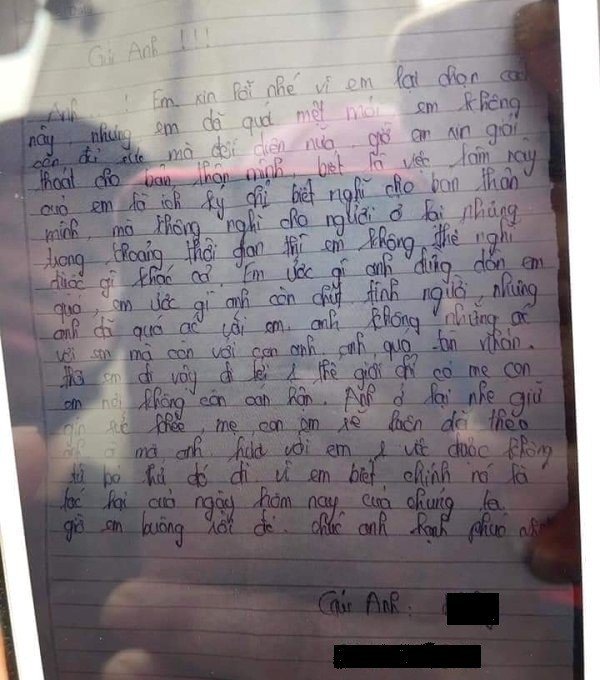 Gửi Anh !!!
Anh ! Em xin lỗi nhé vì em lại chọn cách
này, nhưng em đã quá mệt mỏi em không
còn đủ sức mà đối diện nữa, giờ em xin giải
thoát cho bản thân mình, biết là việc làm này
của em là ích kỷ chỉ biết nghĩ cho bản thân
mình, mà không nghĩ cho người ở lại nhưng
trong khoảng thời gian thì em không thể nghĩ
được gì khác cả. Em ước gì anh đừng dồn em
quá, em ước gì anh còn chút tình người nhưng
anh đã quá ác với em, anh không những ác
với em mà còn với con anh, anh quá tàn nhẫn.
Thà em đi vậy đi tới 1 thế giới chỉ có mẹ con
em nơi không còn oan hận. Anh ở lại nhé giữ
gìn sức khỏe, mẹ con em sẽ luôn dõi theo
mà anh hứa với em 1 việc được không
từ bỏ thứ đó đi vì em biết chính nó là
tác hại của ngày hôm nay của chúng ta.
giờ em buông rồi đó. chúc anh hạnh phúc
Gửi Anh :